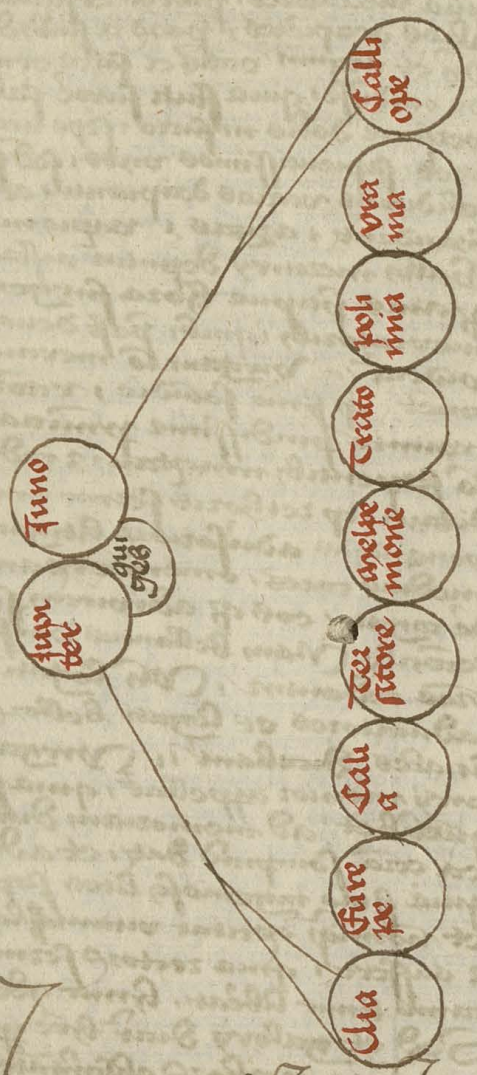 Jupi
ter
Juno
Clia
Eure
pe
Tali
a
Ter
sicore
Melpe
mone
Erato
poli
mia
vra
nia
Calli
ope